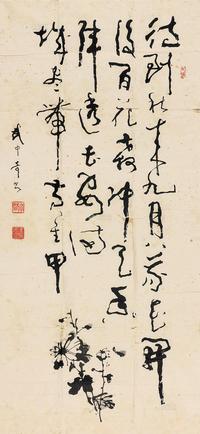 待到秋来九月八我花开
后百花杀冲天香
阵透长安满
城尽带黄金甲
武中奇书